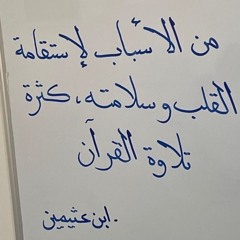 من الأسباب لإستقامة
القلب وسلامته، كثرة
تلاوة القرآن
ابن عثيمين.